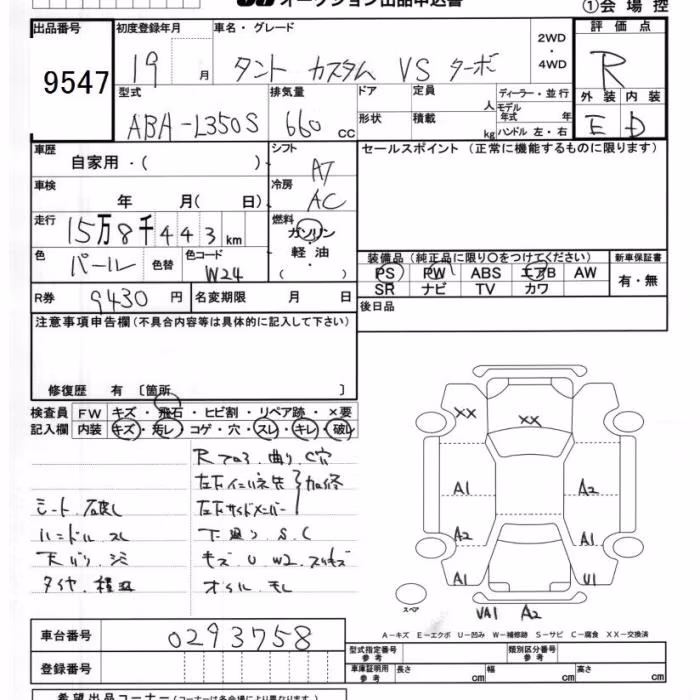 オークション出品申込書
①会場控
出品番号
9547
初度登録年月
19 月
車名・グレード
タント カスタム VS ターボ
2WD・4WD
評価点
R
型式
ABA-L350S
排気量
660 cc
ドア
形状
定員 人
積載 kg
ディーラー・並行
モデル年式 年
ハンドル 左・右
外装 内装
E D
車歴
自家用・( )
シフト
AT
車検
年 月( 日)
冷房
AC
走行
15万8千443km
燃料
ガソリン・軽油・( )
色
パール
色替
色コード
W24
R券
9430 円
名変期限 月 日
セールスポイント (正常に機能するものに限ります)
装備品(純正品に限り○をつけてください)
PS PW ABS エアB AW
SR ナビ TV カワ
新車保証書
有・無
後日品
注意事項申告欄(不具合内容等は具体的に記入して下さい)
修復歴 有 〔箇所 〕
検査員記入欄
FW キズ・飛石・ヒビ割・リペア跡・×要
内装 キズ・汚レ・コゲ・穴・スレ・キレ・破レ
シート 破レ
ハンドル スレ
天バリ シミ
左右サイドメンバー
下廻り S. C
キズ U W2 スリキズ
オイル モレ
XX XX
A1 A2
A2 A1
A1 U1
スペア
UA1 A2
A-キズ E-エクボ U-凹み W-補修跡 S-サビ C-腐食 XX-交換済
車台番号
0293758
登録番号
型式指定番号 参考
類別区分番号 参考
車庫証明用 参考
長さ cm
幅 cm
高さ cm
希望出品コーナー(コーナーは各会場により異なります)